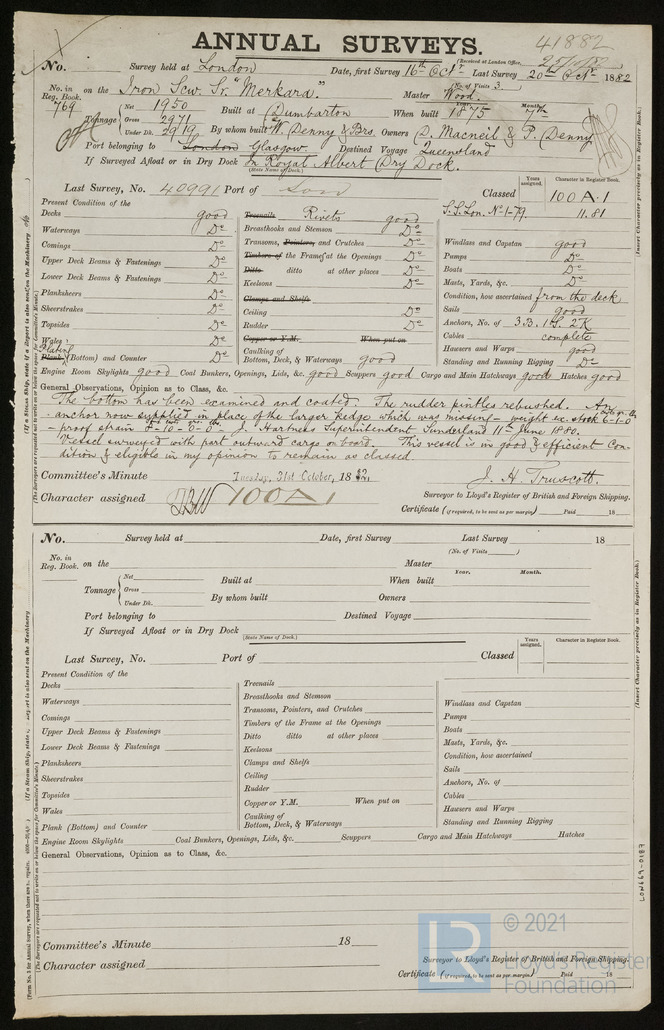 ANNUAL SURVEYS.
41882
(Received at London Office,
No. Survey held at London Date, first Survey 16th Octr Last Survey 20th Octr 1882
(No. of Visits 3)
No. in Reg. Book. on the Iron Scw. Sr. "Merkara." Master Wood.
769
Year. Month.
Tonnage Net 1950 Built at Dumbarton When built 1875 7th
Gross 2971
Under Dk. 2919 By whom built W. Denny & Brs. Owners D. Macneil & P. Denny
Port belonging to London Glasgow. Destined Voyage Queensland
If Surveyed Afloat or in Dry Dock In Royal Albert Dry Dock.
(State Name of Dock.)
Years assigned. Character in Register Book.
Last Survey, No. 40991 Port of Lon Classed 100 A.1
S.S.Lon. No 1-79. 11.81
Present Condition of the
Decks good
Waterways Do
Comings Do
Upper Deck Beams & Fastenings Do
Lower Deck Beams & Fastenings Do
Planksheers Do
Sheerstrakes Do
Topsides Do
Wales Do
Plating
Plank (Bottom) and Counter Do
Treenails Rivets good
Breasthooks and Stemson Do
Transoms, Pointers, and Crutches Do
Timbers of the Frames at the Openings Do
Ditto ditto at other places Do
Keelsons Do
Clamps and Shelfs
Ceiling Do
Rudder Do
Copper or Y.M. When put on
Caulking of
Bottom, Deck, & Waterways good
Windlass and Capstan good
Pumps Do
Boats Do
Masts, Yards, &c. Do
Condition, how ascertained from the deck
Sails good
Anchors, No. of 3.B. 1.S. 2K
Cables complete
Hawsers and Warps good
Standing and Running Rigging Do
Engine Room Skylights good Coal Bunkers, Openings, Lids, &c. good Scuppers good Cargo and Main Hatchways good Hatches good
General Observations, Opinion as to Class, &c.
The bottom has been examined and coated. The rudder pintles rebushed. An
anchor now supplied in place of the larger kedge which was missing - weight ex. stock 6-1-0
- proof strain J. Hartness Superintendent Sunderland 11th June 1880.
Vessel surveyed with part outward cargo on board. This vessel is in good & efficient Con-
dition & eligible in my opinion to remain as classed.
Committee's Minute Tuesday, 31st October, 1882.
J. H. Truscott.
Character assigned 100A1
Surveyor to Lloyd's Register of British and Foreign Shipping.
Certificate (if required, to be sent as per margin) Paid 18
No. Survey held at Date, first Survey Last Survey 18
(No. of Visits )
No. in Reg. Book. on the Master
Year. Month.
Tonnage Net Built at When built
Gross
Under Dk. By whom built Owners
Port belonging to Destined Voyage
If Surveyed Afloat or in Dry Dock
(State Name of Dock.)
Years assigned. Character in Register Book.
Last Survey, No. Port of Classed
Present Condition of the
Decks
Waterways
Comings
Upper Deck Beams & Fastenings
Lower Deck Beams & Fastenings
Planksheers
Sheerstrakes
Topsides
Wales
Plank (Bottom) and Counter
Treenails
Breasthooks and Stemson
Transoms, Pointers, and Crutches
Timbers of the Frame at the Openings
Ditto ditto at other places
Keelsons
Clamps and Shelfs
Ceiling
Rudder
Copper or Y.M. When put on
Caulking of
Bottom, Deck, & Waterways
Windlass and Capstan
Pumps
Boats
Masts, Yards, &c.
Condition, how ascertained
Sails
Anchors, No. of
Cables
Hawsers and Warps
Standing and Running Rigging
Engine Room Skylights Coal Bunkers, Openings, Lids, &c. Scuppers Cargo and Main Hatchways Hatches
General Observations, Opinion as to Class, &c.
Committee's Minute 18
Character assigned
Surveyor to Lloyd's Register of British and Foreign Shipping.
Certificate (if required, to be sent as per margin) Paid 18
(Insert Character precisely as in Register Book.)
(Insert Character precisely as in Register Book.)
LON669-0187
LR
© 2021
Lloyd's Register
Foundation